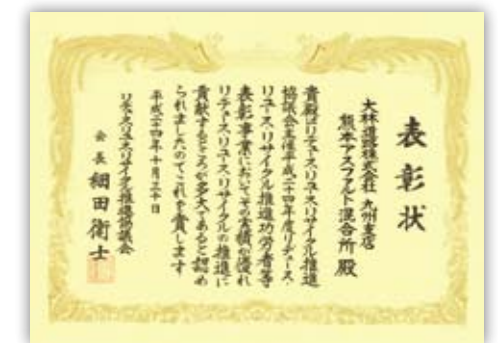 表彰状
大林道路株式会社 九州支店
熊本アスファルト混合所 殿
貴殿はリデュース・リユース・リサイクル推進
協議会主催平成二十四年度リデュース・
リユース・リサイクル推進功労者等
表彰事業においてその実績が優れ
リデュース・リユース・リサイクルの推進に
貢献するところが多大であると認め
られましたのでこれを賞します
平成二十四年十月三十日
リデュース・リユース・リサイクル推進協議会
会長 細田衛士